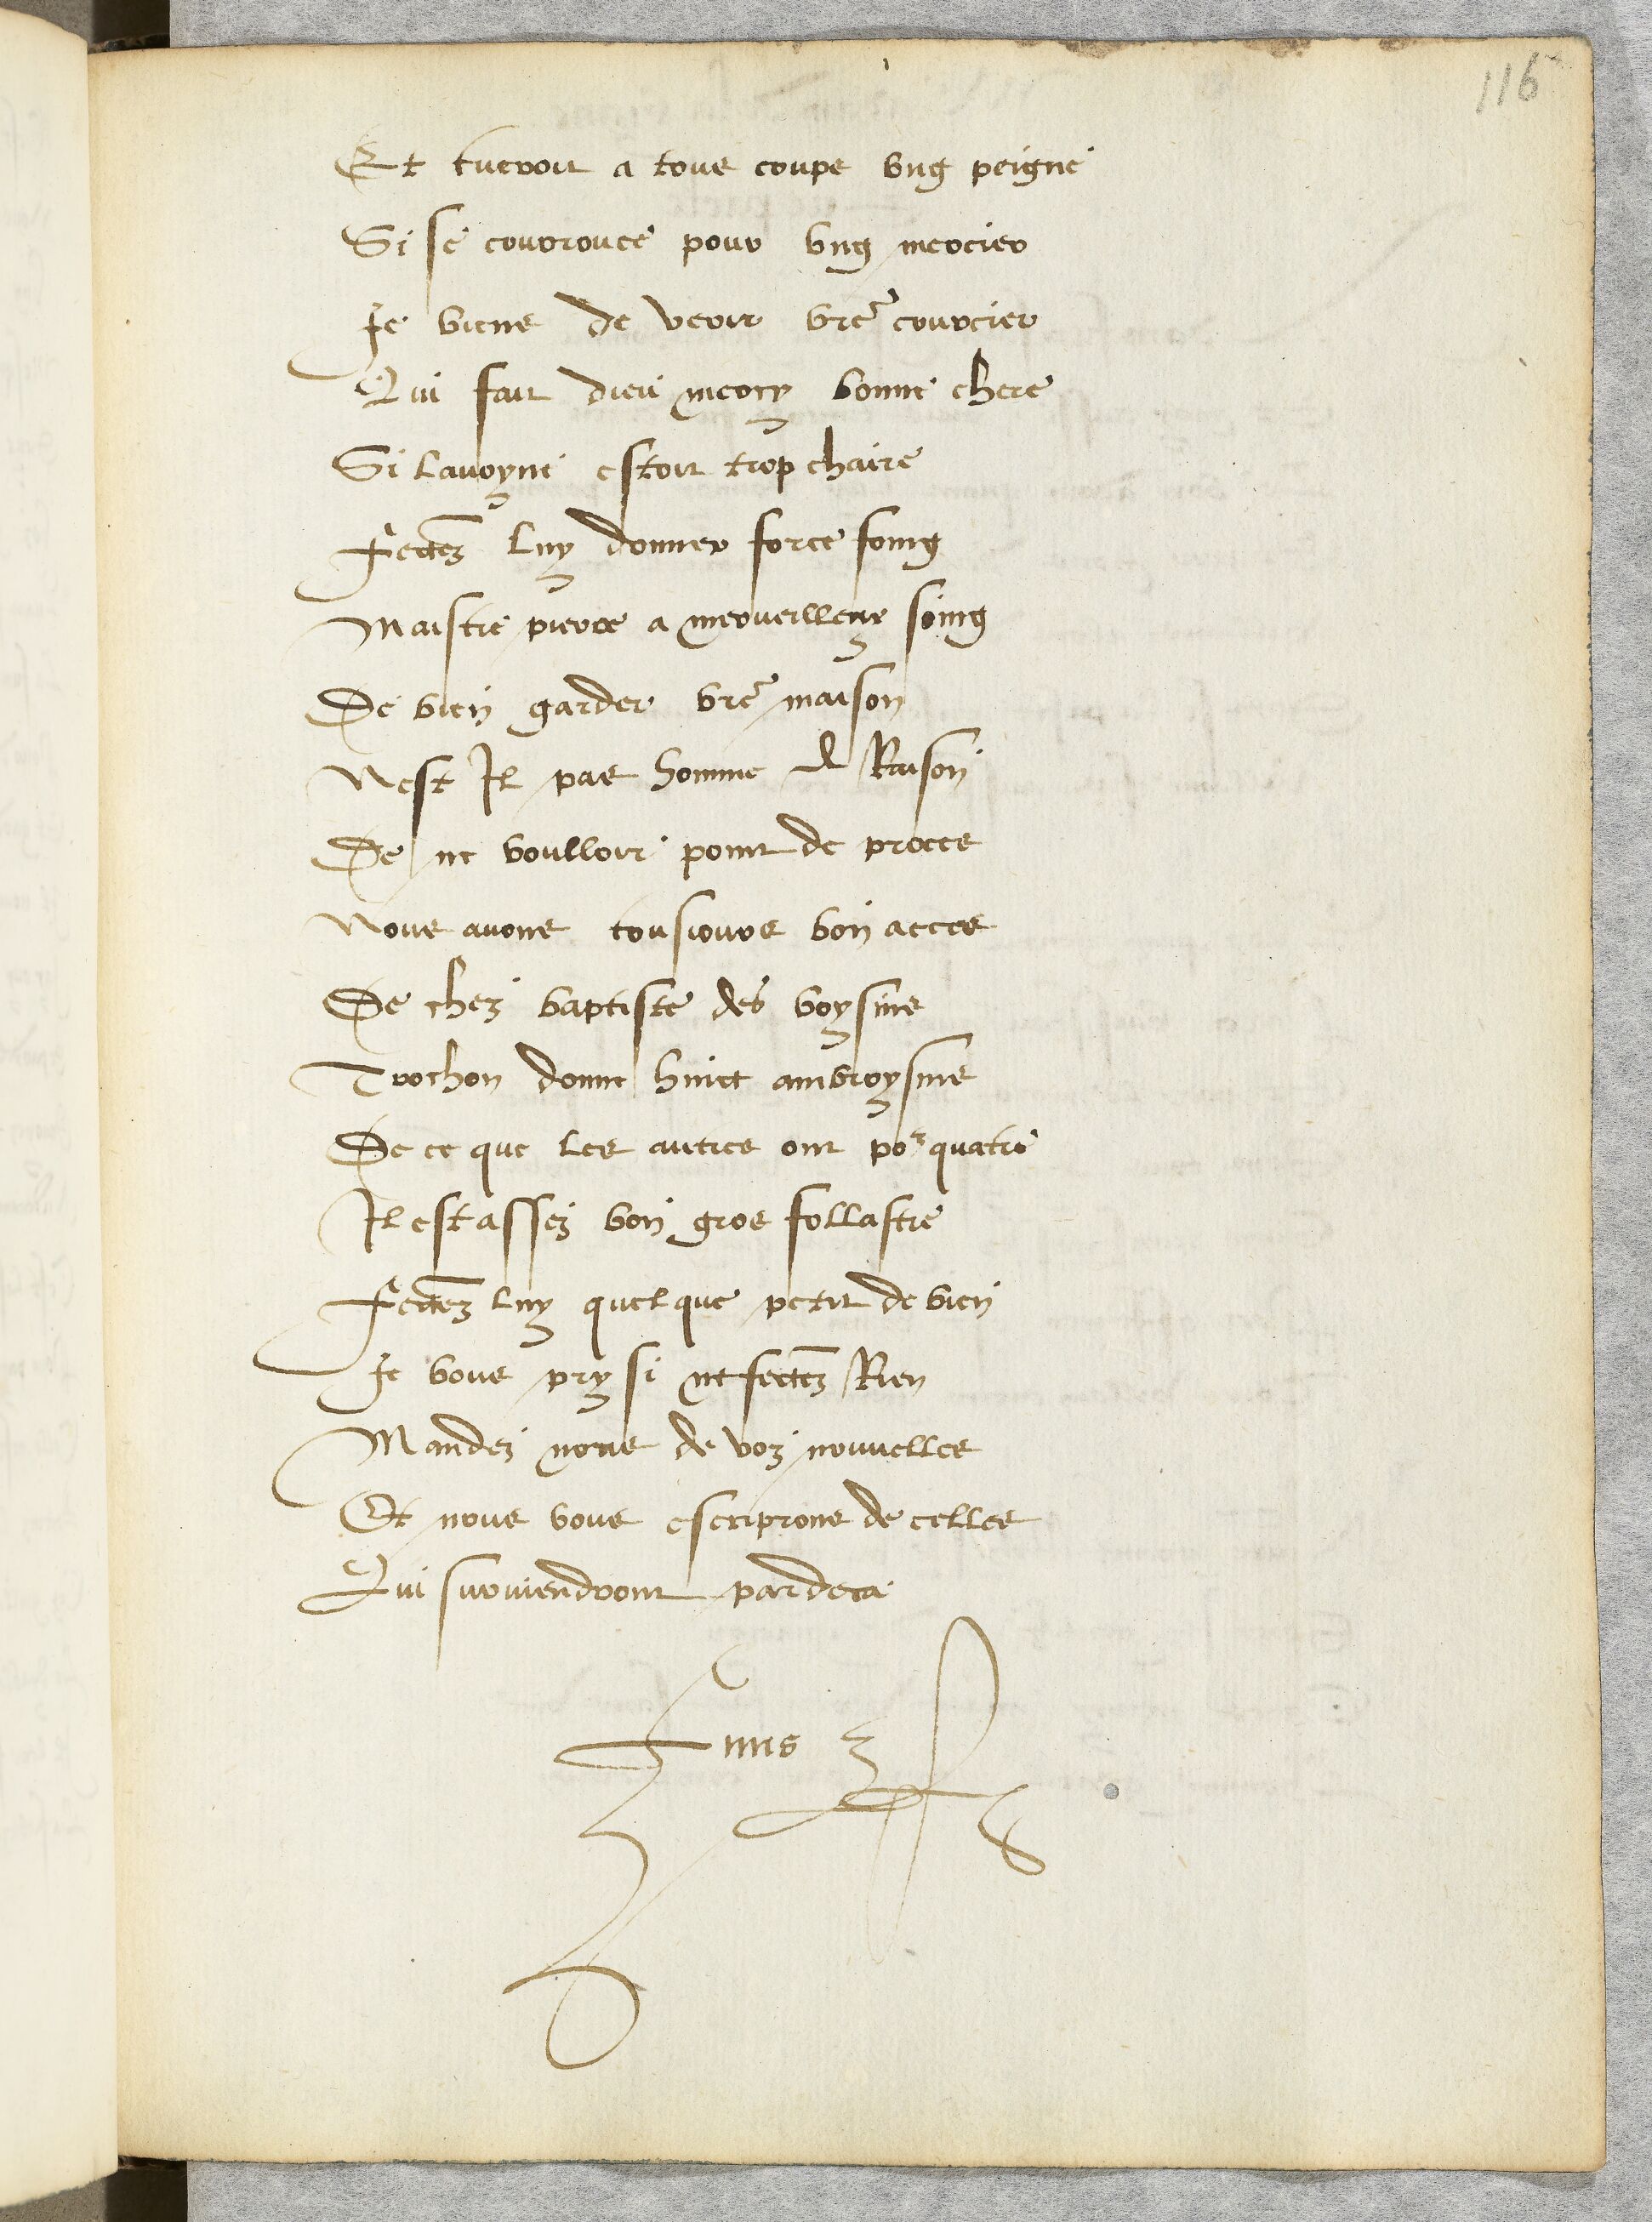 116
Et tueroit a tous coups ung peigne
Si se courrouce pour ung mercier
Je viens de veoir vr̃e courcier
Qui fait dieu mercy bonne chere
Si lavoyne estoit trop chaire
Fectez luy donner force foing
Maistre pierre a merveilleux soing
De bien garder vr̃e maison
Nest Il pas homme de Raison
De ne voulloir point de proces
Nous avons tousiours bon acces
De chez baptiste des voysins
Trochon donne huict ambroysins
De ce que les autres ont po^r quatre
Il est assez bon gros follastre
Fectez luy quelque petit de bien
Je vous pry si ne fectez Rien
Mandez nous de voz nouvelles
Et nous vous escriprons de celles
Qui surviendront pardeca
Finis